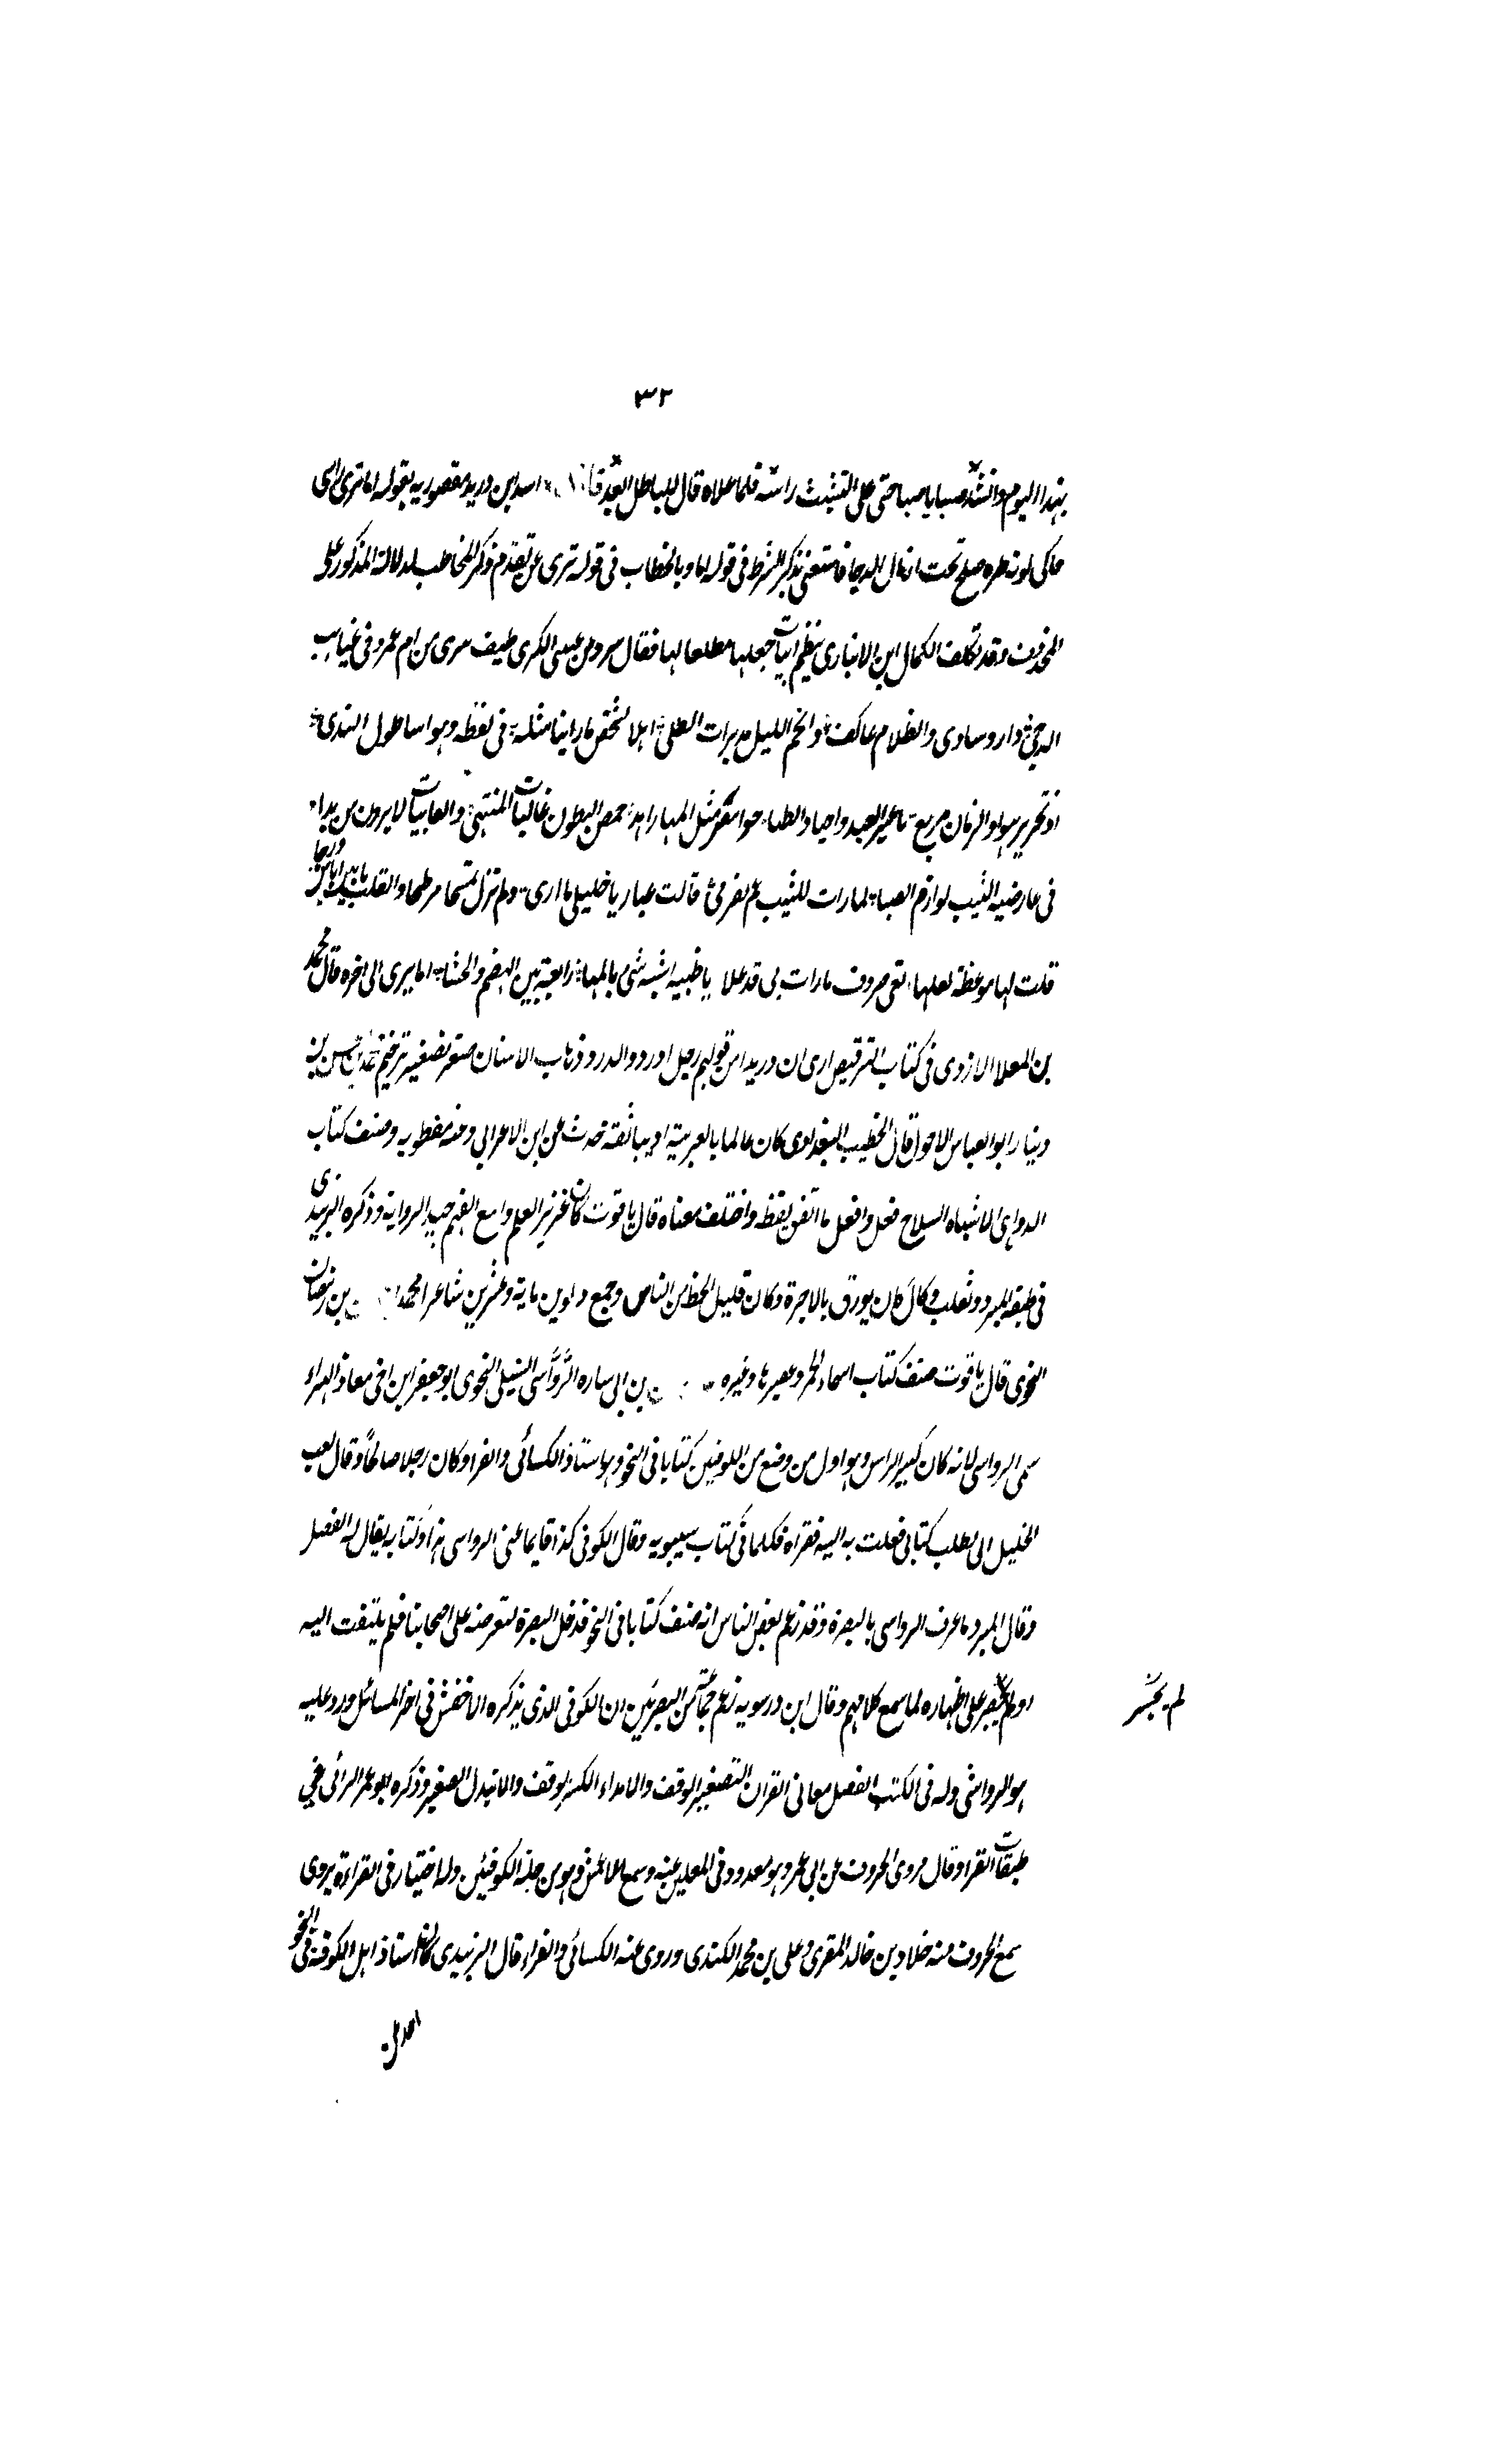 ٣٢
بهذا اليوم وانشد صبا يا صبا حتى على التشبث راسه فلما علاه قال للباطل ابعد اسد ابن دريد مقصوريه بقوله اما ترى راسى
حاكى لونه طره صبح تحت اذيال الدجا فاستغنى بذكر الشرط فى قوله اما وبالخطاب فى قوله ترى عن تقدم ذكر المخاطب لدلالة المذكور على
المحذوف وقد تكلف الكمال ابن الانبارى بنظم ابيات جعلها مطلعا لها فقال سرد من عينى الكرى طيف سرى من ام عمرو فى غياهب
الدجى دار وساوى والظلام عاكف وانجم الليل مدبرات العلى اهلا لشخص ما راينا مثله فى لفظه وهو اساطول الندى
فى عارضيه الشيب لوازم الصبا لما رات للشيب قالت عبار يا خليلى ما ارى ولم تزل والقلب
قلت لها موعظة لعلها تعى صروف ما رات بى قد علا يا ظبيه اشبه شئ بالمها راتعة بين الهضم والحشا اما يرى الى اخره قال محمد
بن المعلا الازدى فى كتاب الترقيص ارى ان دريد امن قولهم رجل ادرد والدرد ذهاب الاسنان صغر تصغير ترخيم محمد بن حسن بن
دينار ابو العباس الاحول قال الخطيب البغدادى كان عالما بالعربية اديبا ثقة حدث عن ابن الاعرابى وعنه نفطويه وصنف كتاب
الدواهى الاشباه السلاح فعل وافعل ما اتفق لفظه واختلف معناه قال ياقوت كان غزير العلم واسع الفهم جيد الرواية وذكره الزبيدى
فى طبقة المبرد وثعلب وكان يورق بالاجرة وكان قليل الحظ من الناس وجمع دواوين ماية وعشرين شاعرا محمد بن رمضان
النحوى قال ياقوت صنف كتاب اسماء الخمر وعصيرها وغيره بن ابى ساره الرواسى النيلى النحوى ابو جعفر ابن اخى معاذ الهراء
سمى الرواسى لانه كان كبير الراس وهو اول من وضع من الكوفيين كتابا فى النحو وهو استاذ الكسائى والفرا وكان رجلا صالحا وقال بعث
الخليل الى يطلب كتابى فبعثت به اليه فقراه فكلما فى كتاب سيبويه وقال الكوفى كذا فانما عنى الرواسى هذا وكتابه يقال له الفصل
وقال المبرد ما عرف الرواسى بالبصرة وقد زعم بعض الناس انه صنف كتابا فى النحو فدخل البصرة لتعرضه على اصحابنا فلم يلتفت اليه
او لم يجسر على اظهاره لما سمع كلامهم وقال ابن درسويه زعم جماعة من البصريين ان الكوفى الذى يذكره الاخفش فى اخر المسائل ورد عليه
لم يجسر
هو الرواسى وله فى الكتب الفصل معانى القران التصغير الوقف والابتداء الكبير الوقف والابتداء الصغير وذكره ابو عمر الدانى فى
طبقات القرا وقال روى الحروف عن ابى عمرو وهو معدود فى المقلين عنه وسمع الاعمش وهو من جلة الكوفيين وله اختيار فى القراءة يروى
سمع الحروف منه خلاد بن خالد المقرى وعلى بن محمد الكندى وروى عنه الكسائى والفراء قال الزبيدى كان استاذ اهل الكوفة فى النحو